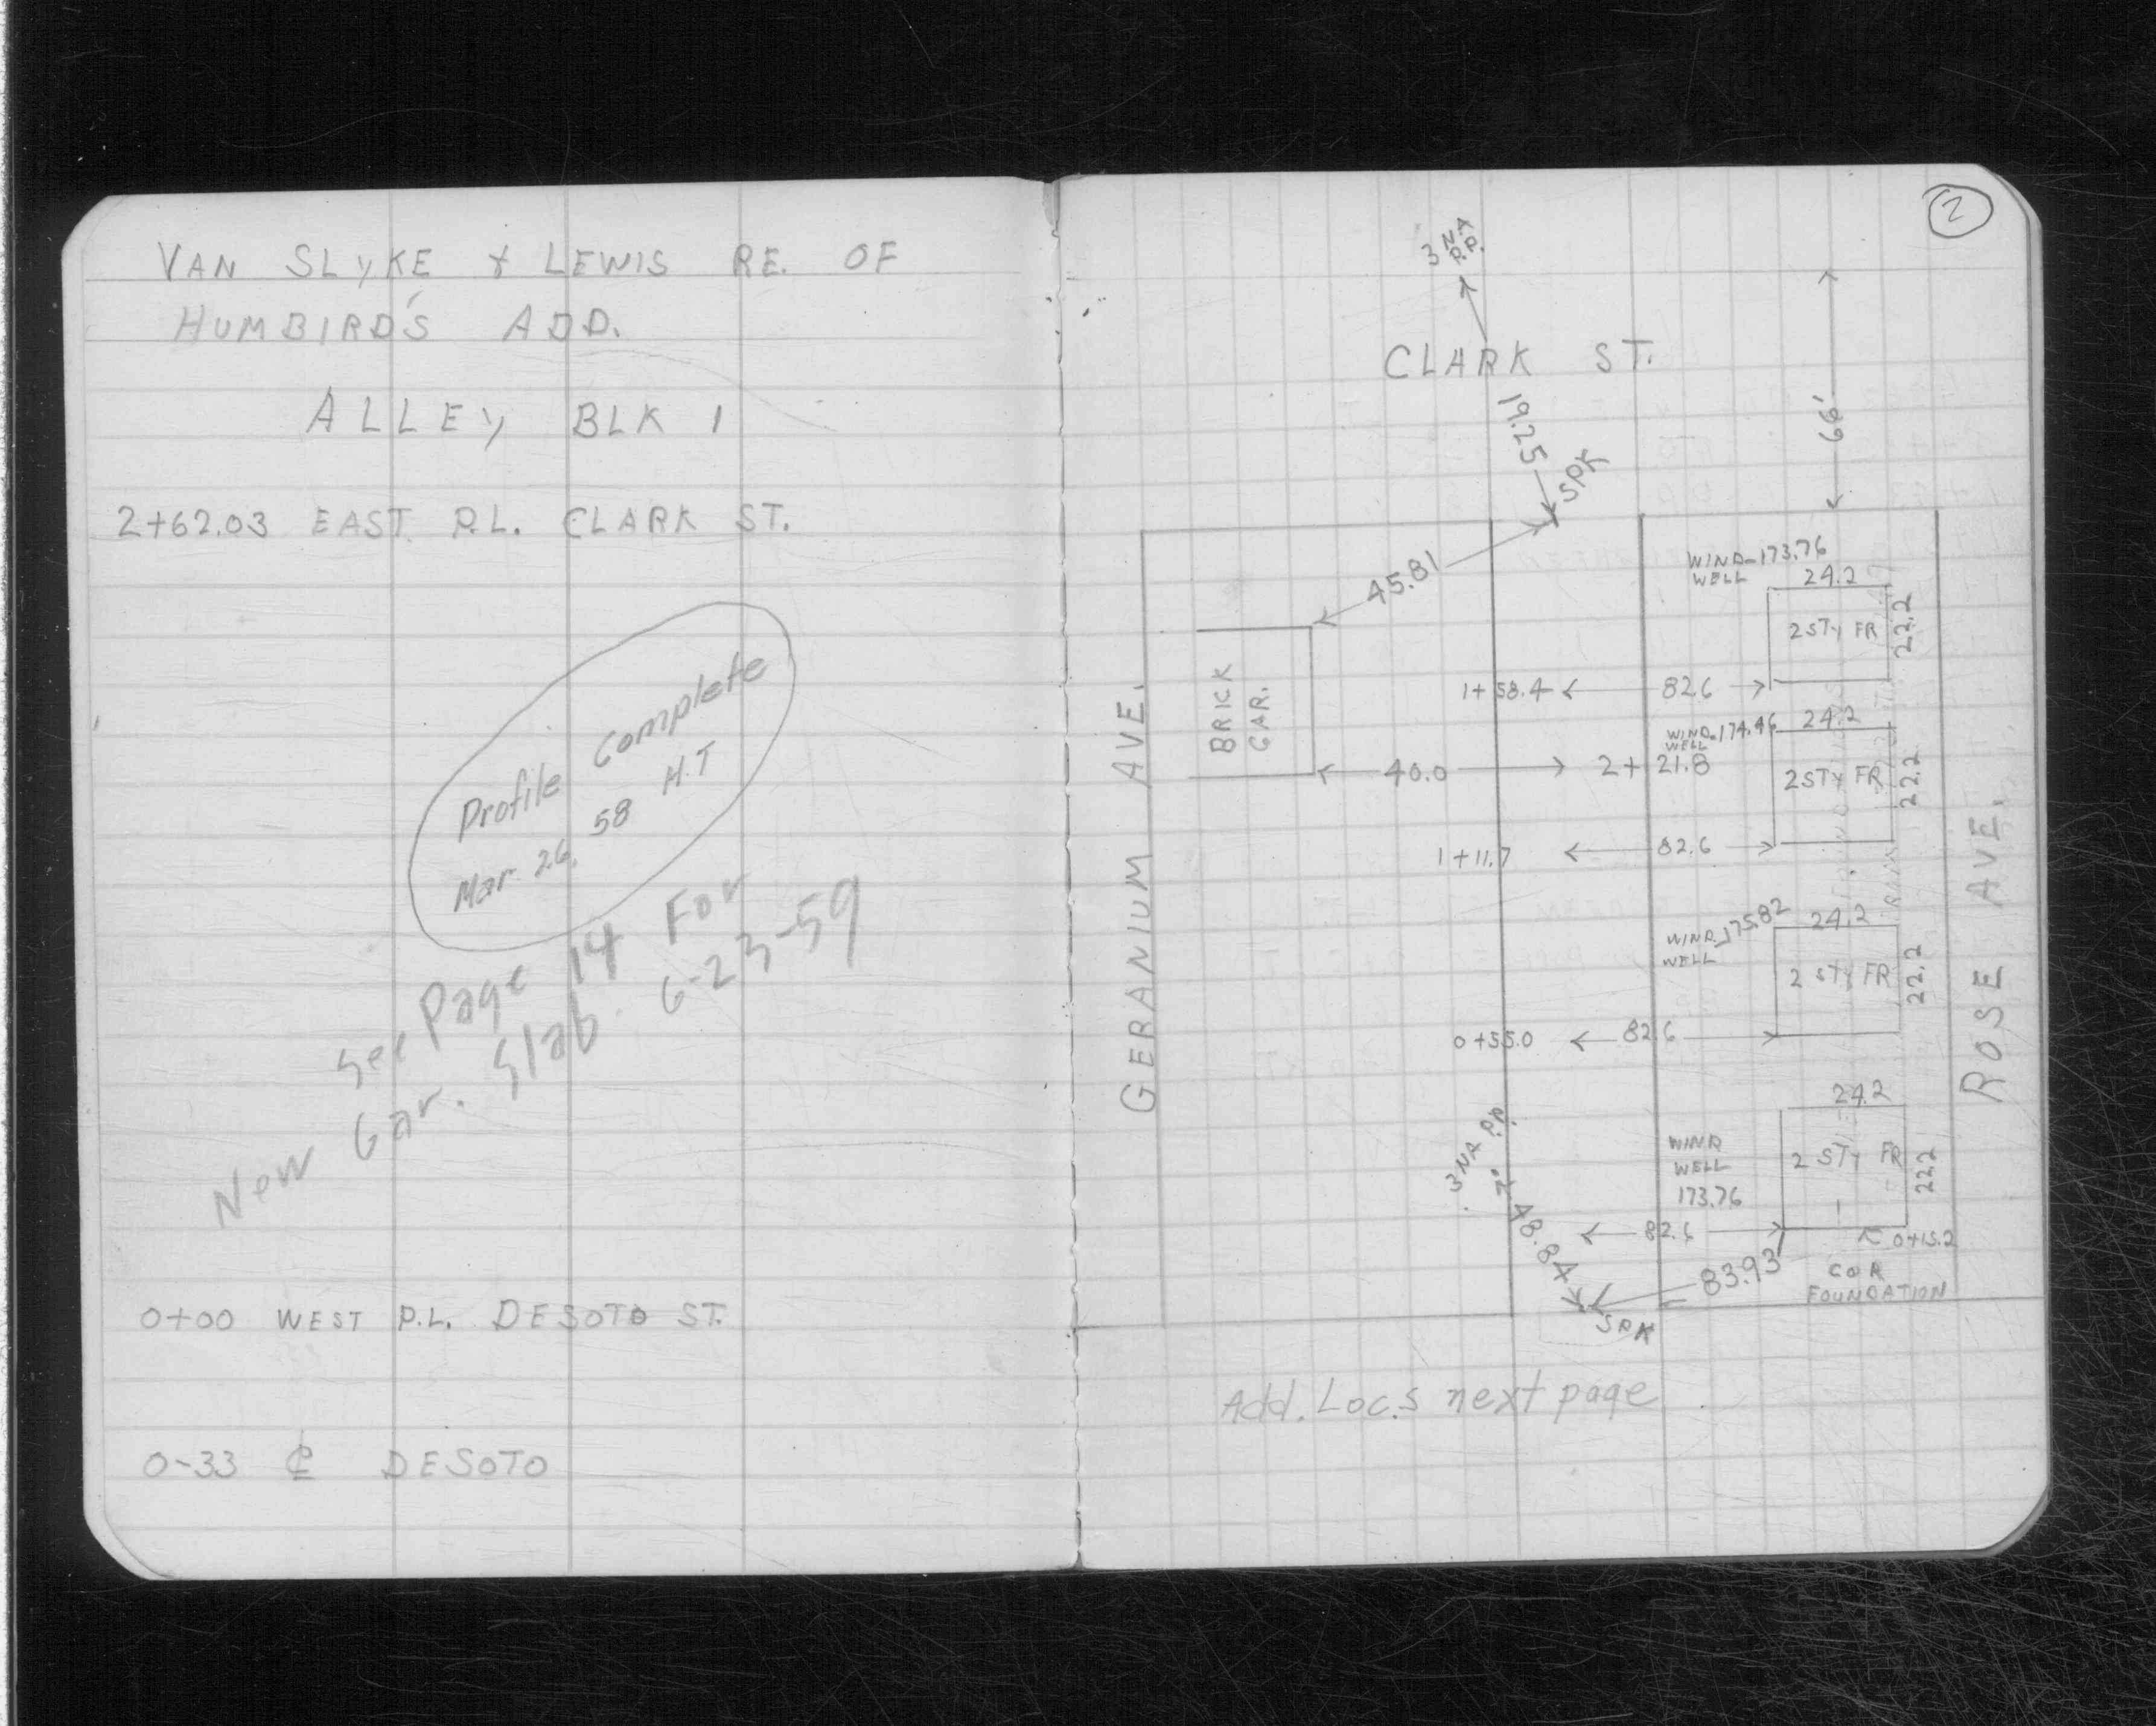 VAN SLYKE & LEWIS RE. OF
HUMBIRD'S ADD.
ALLEY BLK 1
2+62.03 EAST P.L. CLARK ST.
Profile Complete
Mar. 26, 58 H.T
See Page 14 For
New Gar. Slab. 6-23-59
0+00 WEST P.L. DESOTO ST.
0-33 ℄ DESOTO
2
3 NR
P.P.
CLARK ST.
19.25
SPK
66'
45.81
WIND-173.76
WELL
24.2
2 STY FR
22.2
BRICK
GAR.
1+58.4
82.6
24.2
WIND-174.46
WELL
40.0
2+21.8
2 STY FR
22.2
1+11.7
82.6
GERANIUM AVE.
ROSE AVE.
WIND-175.82
WELL
24.2
2 STY FR
22.2
0+55.0
82.6
24.2
3 NR P.P.
WIND
WELL
173.76
2 STY FR
22.2
48.84
82.6
0+15.2
83.93
COR
FOUNDATION
SPK
Add. Loc.s next page